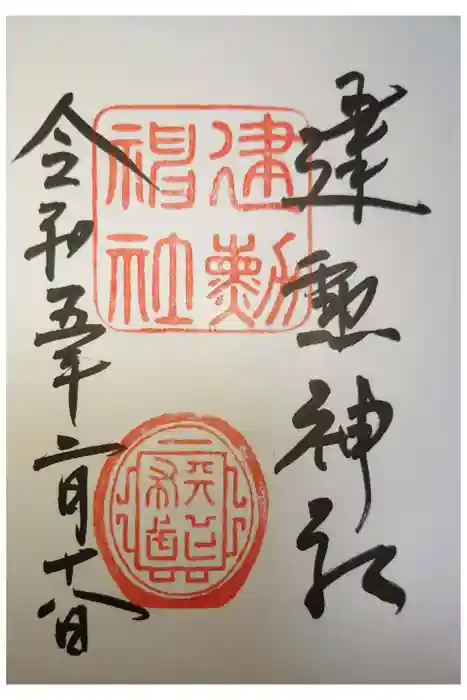 建勲神社
建勳
神社
令和五年二月十八日